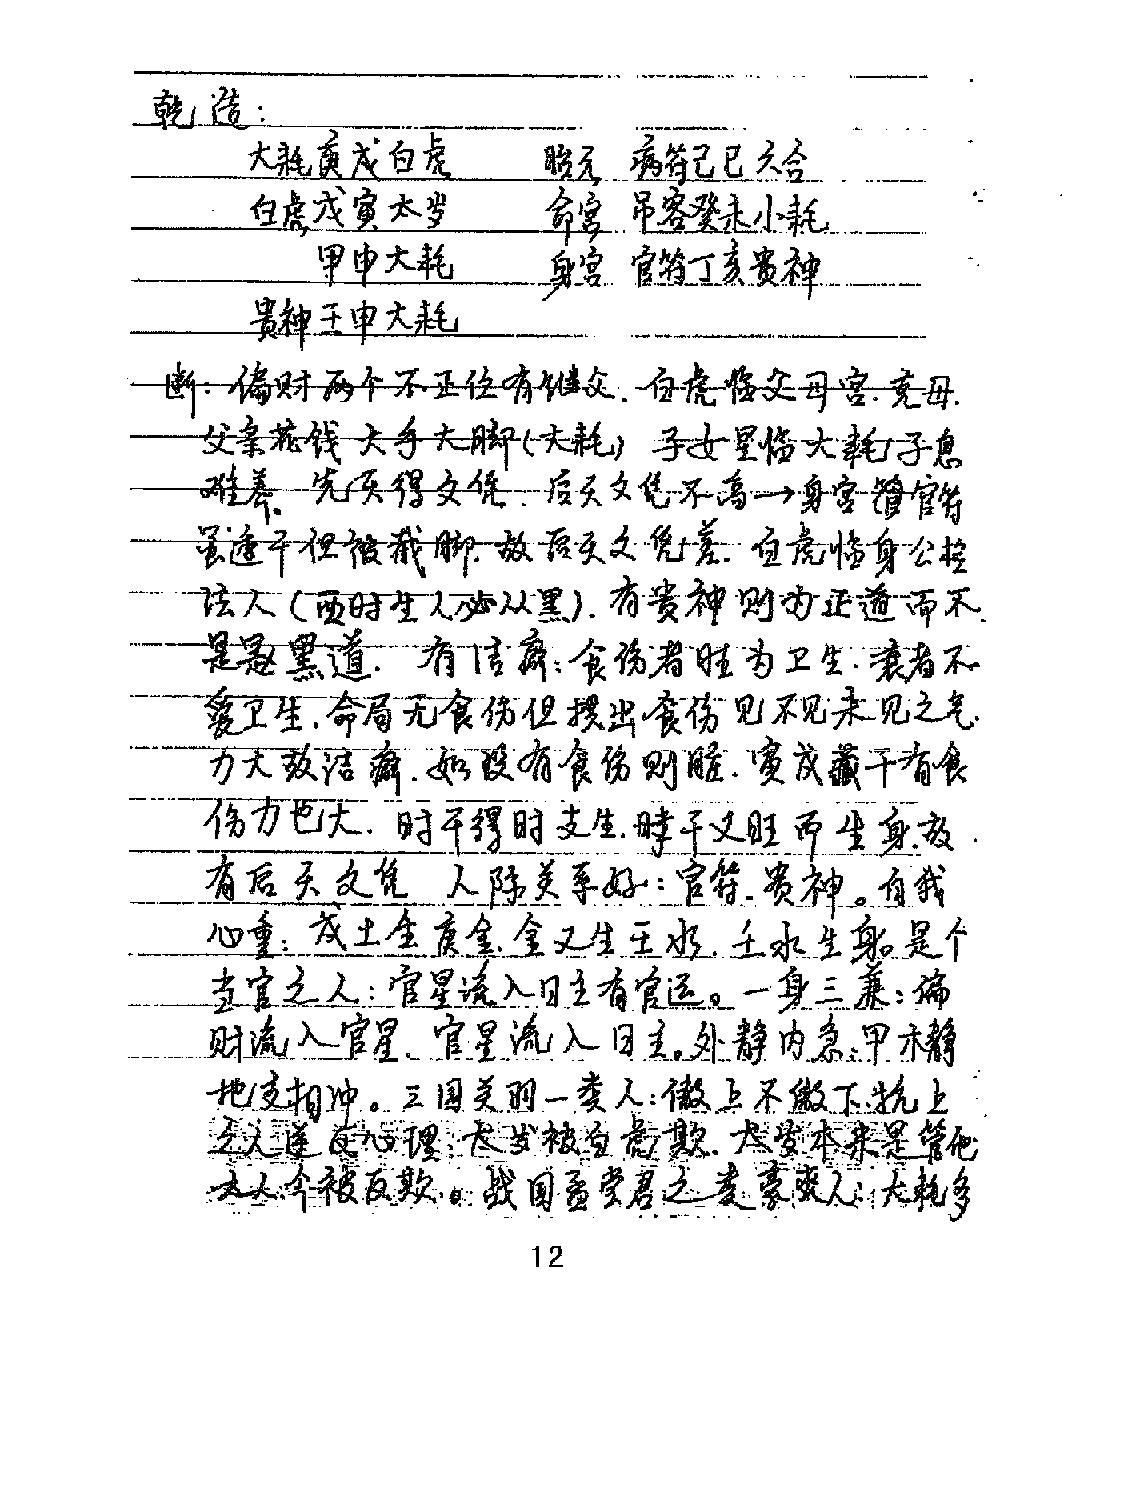 乾造：
大耗庚戌白虎 胎元 病符己巳六合
白虎戊寅太岁 命宫 吊客癸未小耗
甲申大耗 身宫 官符丁亥贵神
贵神壬申大耗
断：偏财两个不正位有继父．白虎临父母宫．克母．
父亲花钱大手大脚（大耗）子女星临大耗子息
难养．先天得文凭．后天文凭不高→身宫官符
虽透干但被截脚．故后天文凭差．白虎临身公检
法人（酉时生人必从黑）．有贵神则为正道而不
是黑道． 有洁癖：食伤者旺为卫生．衰者不
爱卫生．命局无食伤但拱出食伤见不见未见之气
力大故洁癖．如没有食伤则脏．寅戌藏干有食
伤力也大．时干得时支生．时干又旺而生身．故
有后天文凭 人际关系好：官符．贵神。自我
心重：戊土生庚金．金又生壬水．壬水生身。是个
当官之人：官星流入日主有官运。一身三兼：偏
财流入官星．官星流入日主。外静内急：甲木静
地支相冲。三国关羽一类人：傲上不傲下．抗上
之人逆反心理：太岁被白虎欺．太岁本来是管他
之人今被反欺。战国孟尝君之类豪爽人：大耗多
12